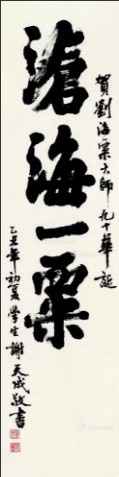 賀劉海粟大師九十華誕
滄海一粟
乙丑年初夏學生謝天成敬書